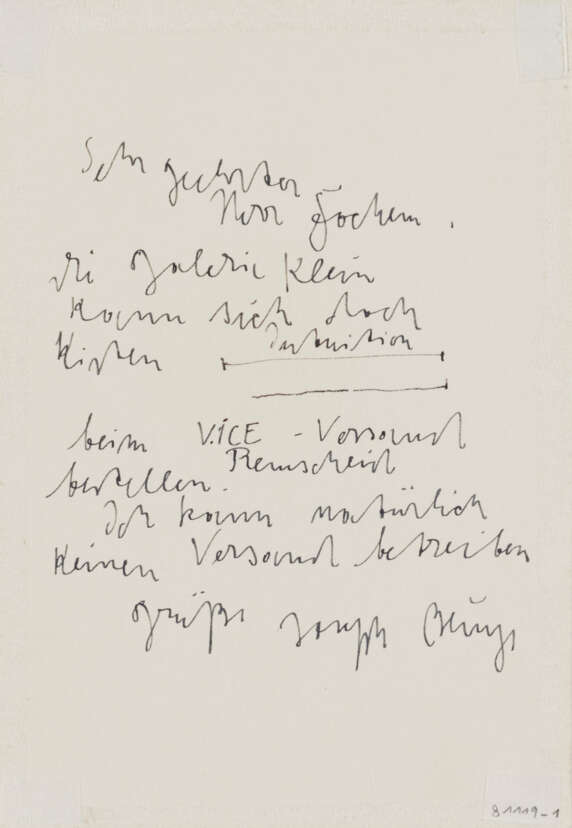 Sehr geehrter
Herr Jochem.
die Galerie Klein
kann sich doch
Kisten Intuition
beim VICE - Versand
Remscheid
bestellen.
Ich kann natürlich
keinen Versand betreiben
Grüße Joseph Beuys
81119-1